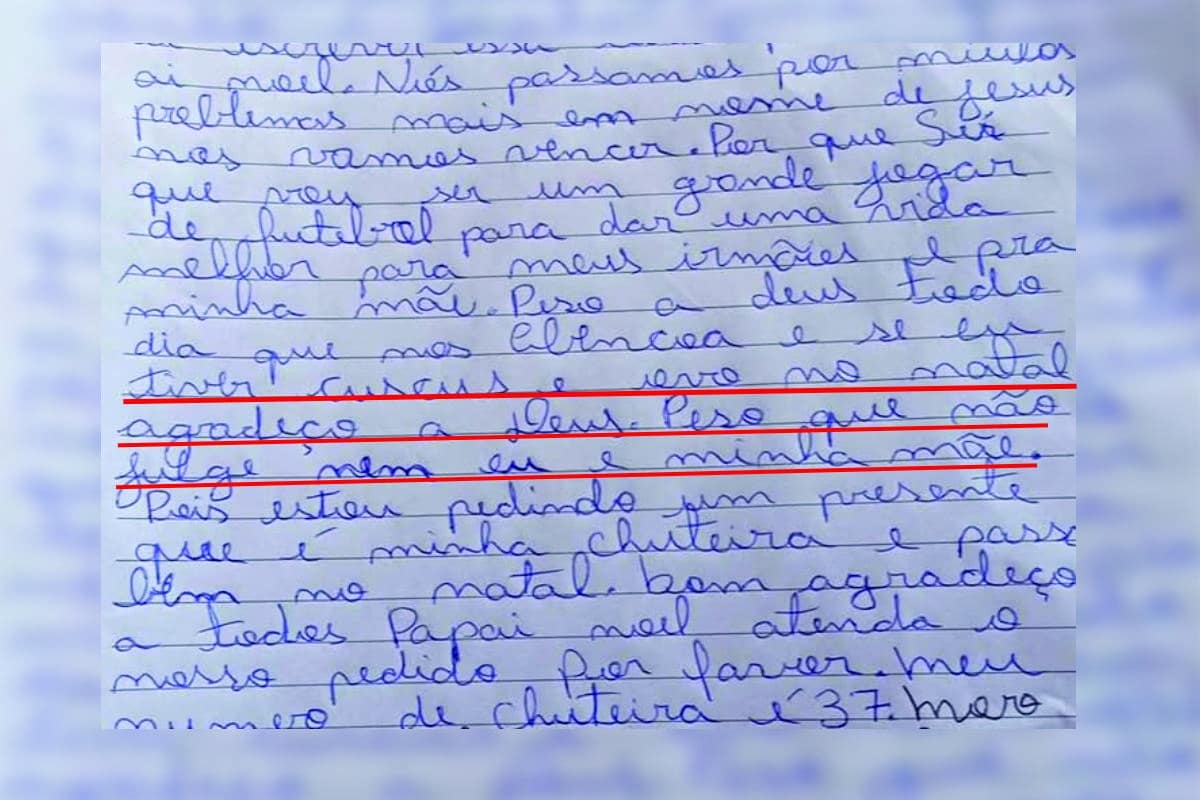 escrever essa
ai noel. Nós passamos por muitos
problemas mais em nome de jesus
nos vamos vencer. Por que Sei
que vou ser um grande jogar
de futebol para dar uma vida
melhor para meus irmães e pra
minha mãe. Peso a deus todo
dia que nos abencoa e se eu
tiver cuscus e ovo no natal
agradeço a Deus. Peso que não
julge nem eu e minha mãe.
Pois estou pedindo um presente
que é minha chuteira e passe
bem no natal. bom agradeço
a todos Papai noel atenda o
nosso pedido Por favor. Meu
numero de chuteira é 37. Moro